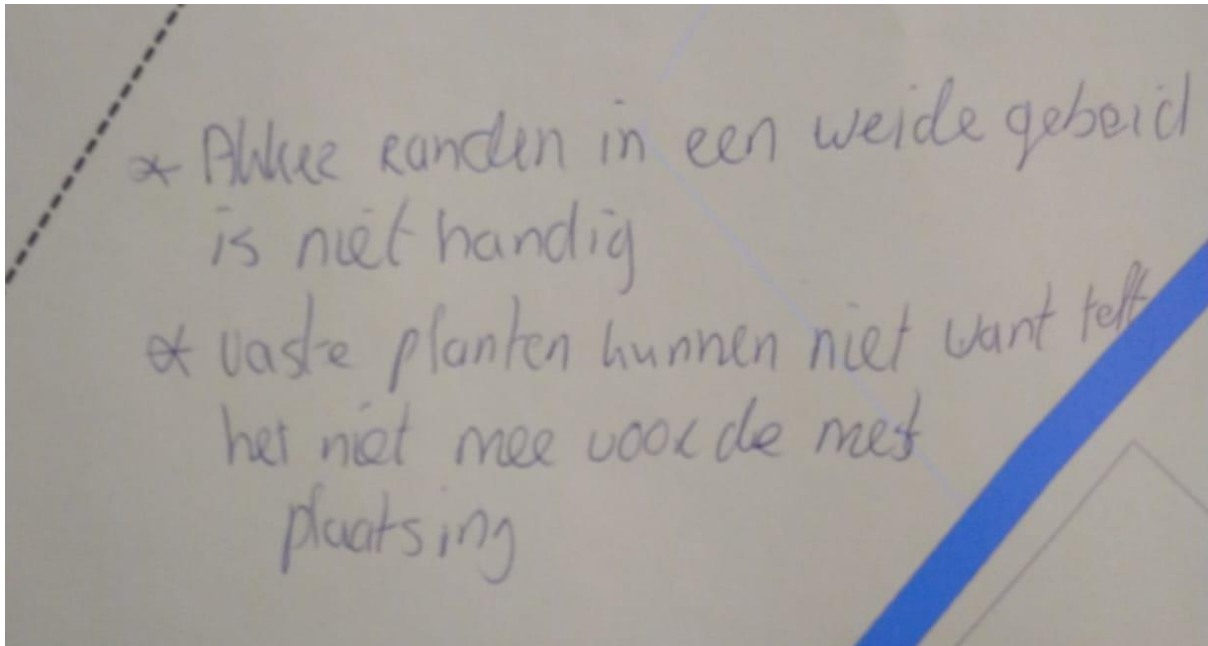 * Akker randen in een weide gebeid
is niet handig
* vaste planten kunnen niet want telt
het niet mee voor de mest
plaatsing